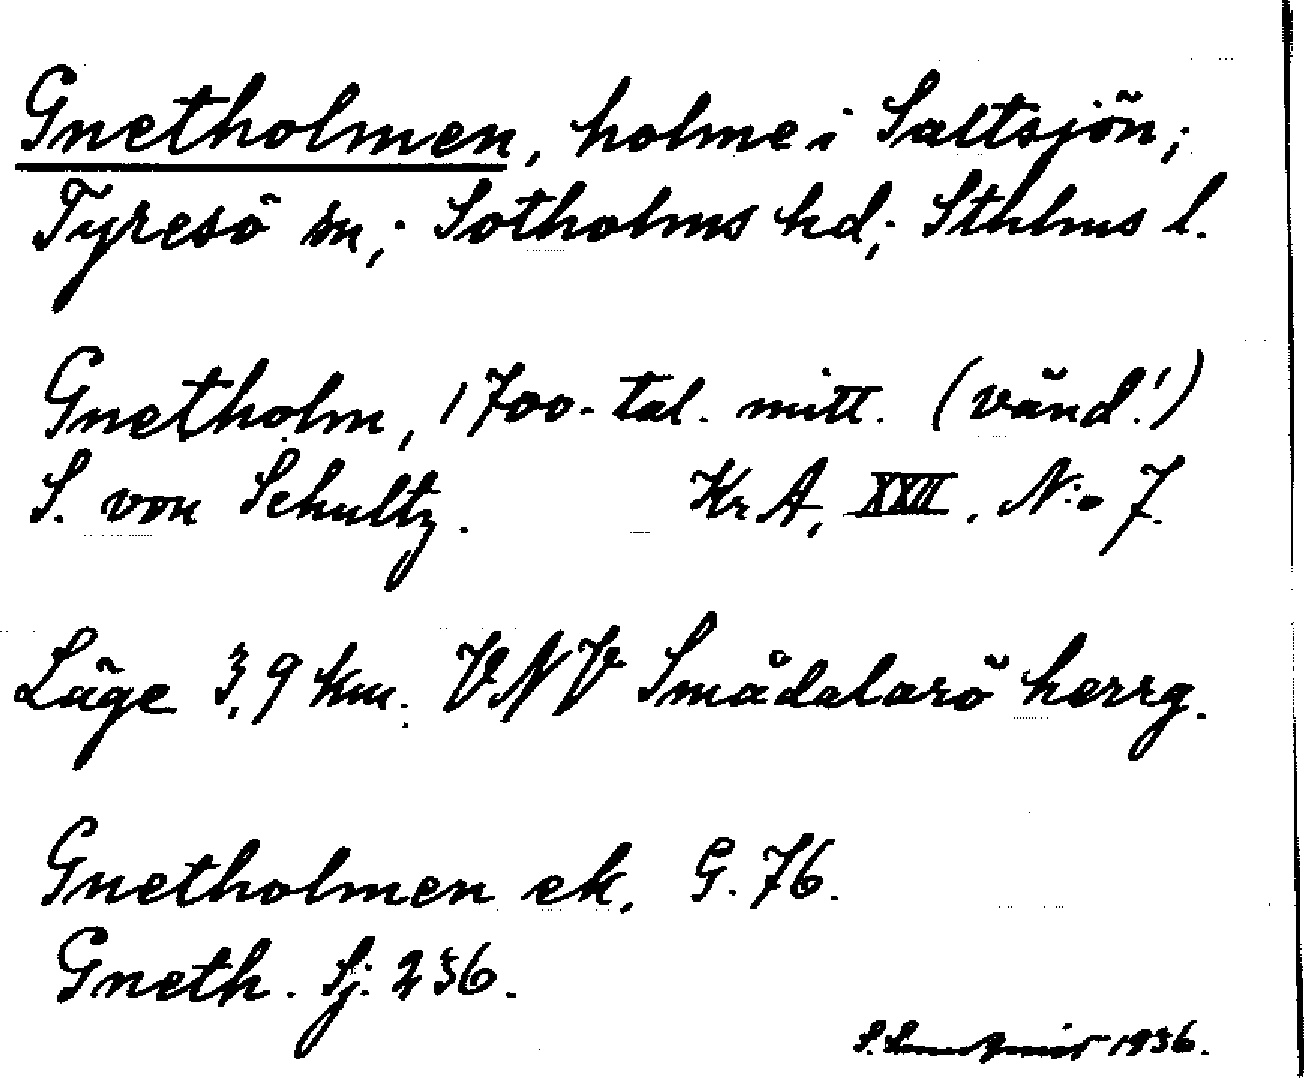 Gnetholmen, holme i Saltsjön;
Tyresö sn; Sotholms hd; Sthlms l.
Gnetholm, 1700-tal. mitt. (vänd!)
S. von Schultz. KrA, XXII, N:o 7.
Läge 3,9 km. VNV Smådalarö herrg.
Gnetholmen ek. G. 76.
Gneth. Sj. 236.
1936.